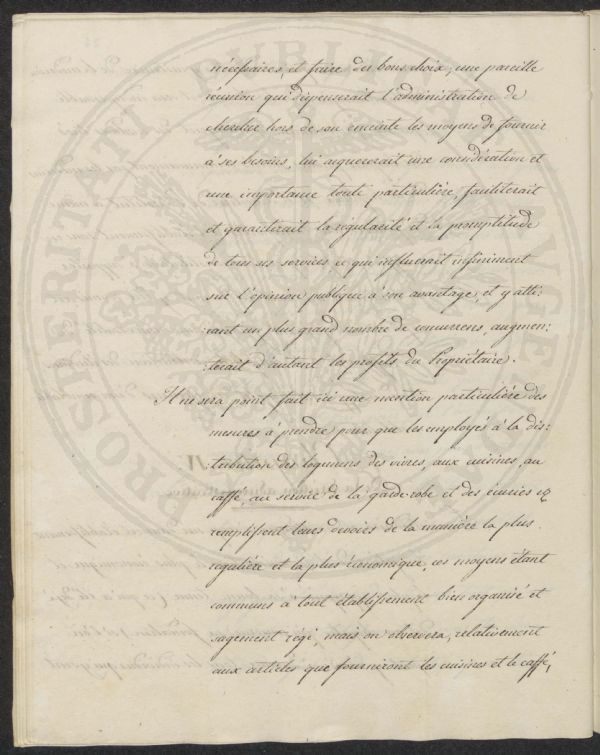 nécessaires, et faire des bons choix; une pareille
réunion qui dispenserait l'administration de
chercher hors de son enceinte les moyens de fournir
à ses besoins, lui acquererait une considération et
une importance toute particulière, faciliterait
et garantirait la régularité et la promptitude
de tous ses services ce qui influerait infiniment
sur l'opinion publique à son avantage, et y atti:
:rant un plus grand nombre de concurrens, augmen:
:terait d'autant les profits du Propriétaire.
Il ne sera point fait ici une mention particulière des
mesures à prendre pour que les employés à la dis:
:tribution des logemens des vivres, aux cuisines, au
caffé, au service de la garde-robe et des écuries
remplissent leurs devoirs de la manière la plus
régulière et la plus économique, ces moyens étant
communs à tout établissement bien organisé et
sagement régi, mais on observera, relativement
aux articles que fourniront les cuisines et le caffé,
PROSPERITATI PUBLICÆ